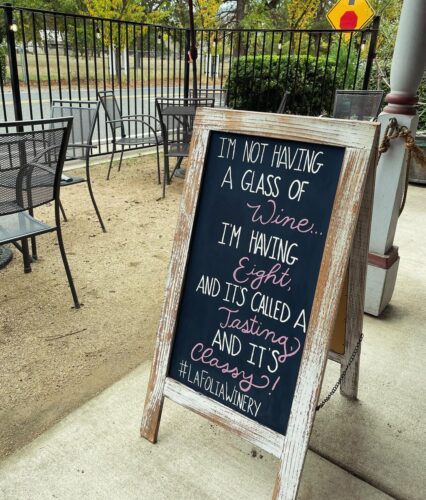 I'M NOT HAVING
A GLASS OF
Wine...
I'M HAVING
Eight,
AND IT'S CALLED A
Tasting,
AND IT'S
Classy!
#LAFOLIAWINERY